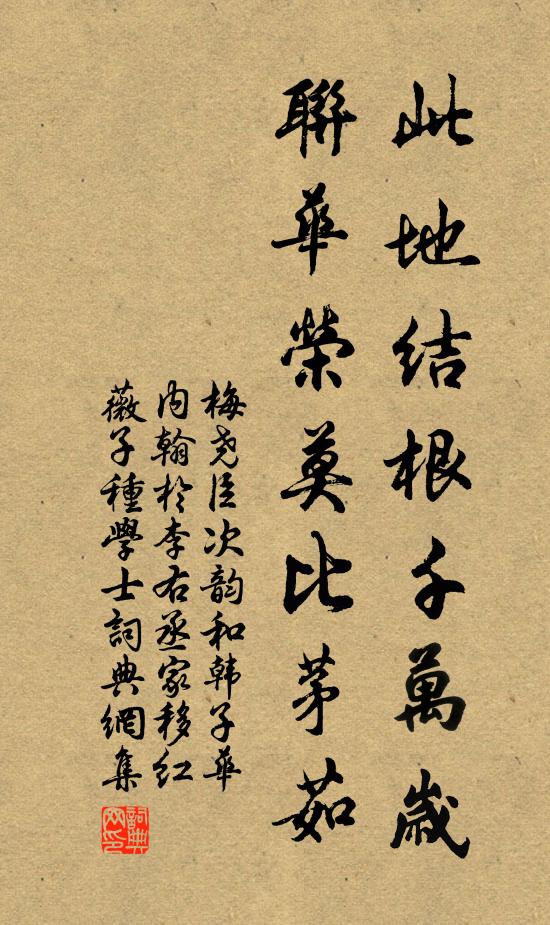 此地结根千萬歲
聯華榮莫比茅茹
梅尧臣次韵和韩子華
内翰於李右丞家移红
薇子種學士詞典網集
詞典网印